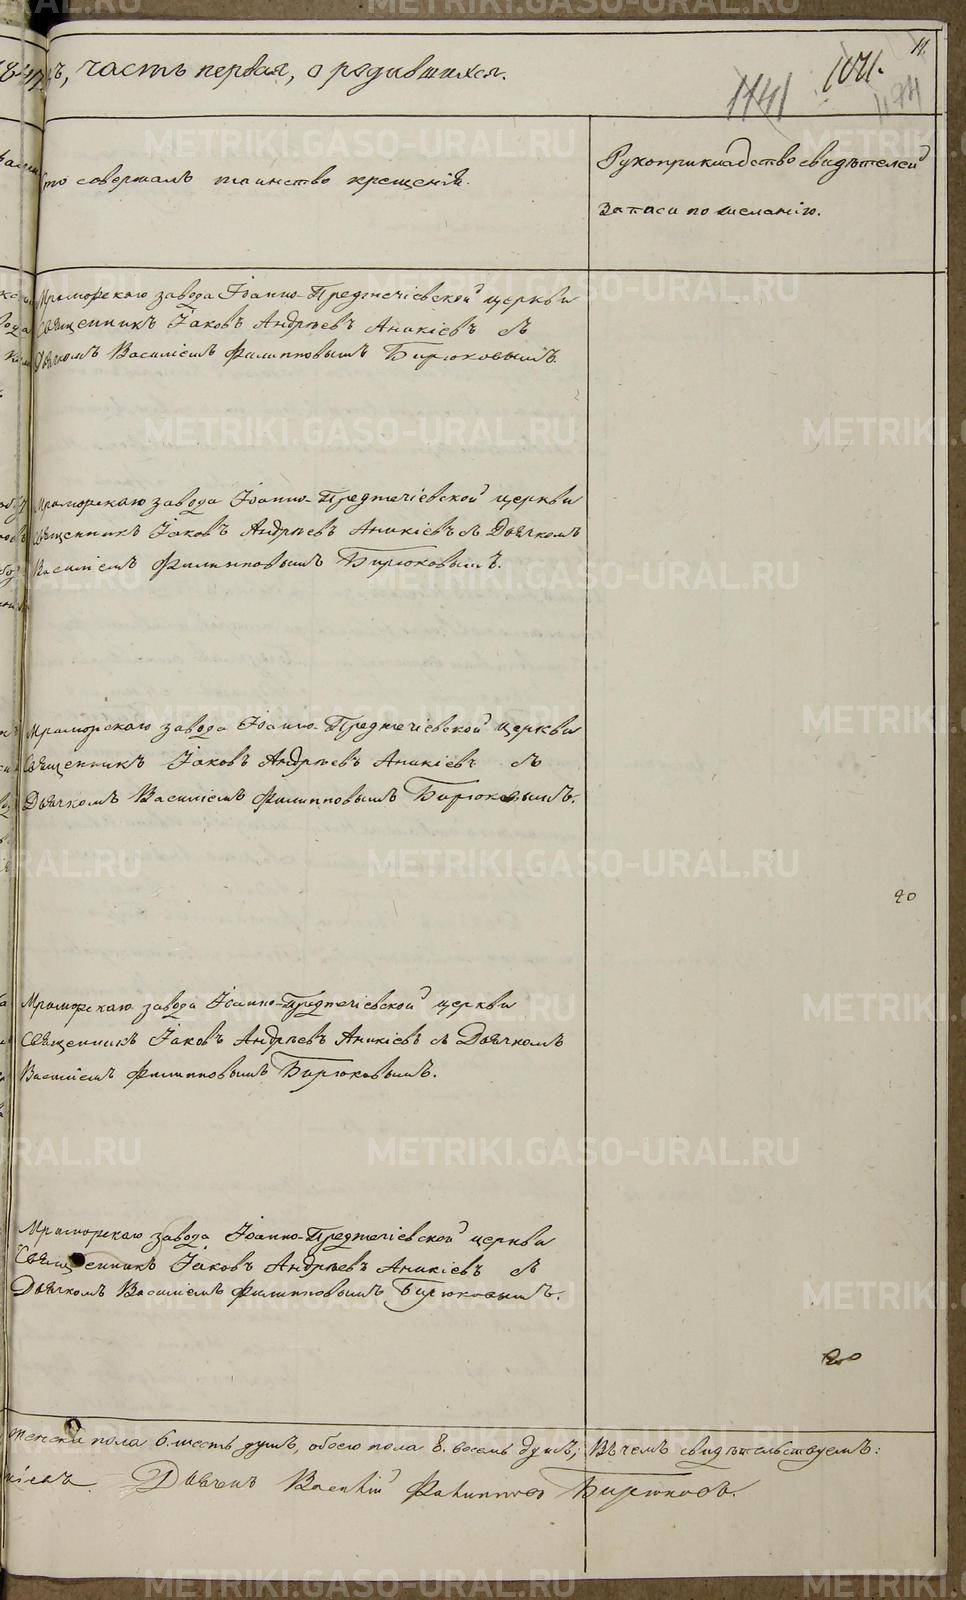 11.
ъ, часть первая, о родившихся.
1141 1041.
Кто совершалъ таинство крещенія.
Рукоприкладство свидѣтелей
записи по желанію.
Мраморскаго завода Іоанно-Предтечіевской церкви
Священникъ Іаковъ Андрѣевъ Аникіевъ съ
Дьячкомъ Василіемъ Филипповымъ Бирюковымъ.
Мраморскаго завода Іоанно-Предтечіевской церкви
Священникъ Іаковъ Андрѣевъ Аникіевъ съ Дьячкомъ
Василіемъ Филипповымъ Бирюковымъ.
Мраморскаго завода Іоанно-Предтечіевской церкви
Священникъ Іаковъ Андрѣевъ Аникіевъ съ
Дьячкомъ Василіемъ Филипповымъ Бирюковымъ.
Мраморскаго завода Іоанно-Предтечіевской церкви
Священникъ Іаковъ Андрѣевъ Аникіевъ съ Дьячкомъ
Василіемъ Филипповымъ Бирюковымъ.
Мраморскаго завода Іоанно-Предтечіевской церкви
Священникъ Іаковъ Андрѣевъ Аникіевъ съ
Дьячкомъ Василіемъ Филипповымъ Бирюковымъ.
женска пола 6. шесть душъ, обоего пола 8. восемь душъ; Въ чемъ свидѣтельствуемъ:
Дьячекъ Василій Филипповъ Бирюковъ.
METRIKI.GASO-URAL.RU